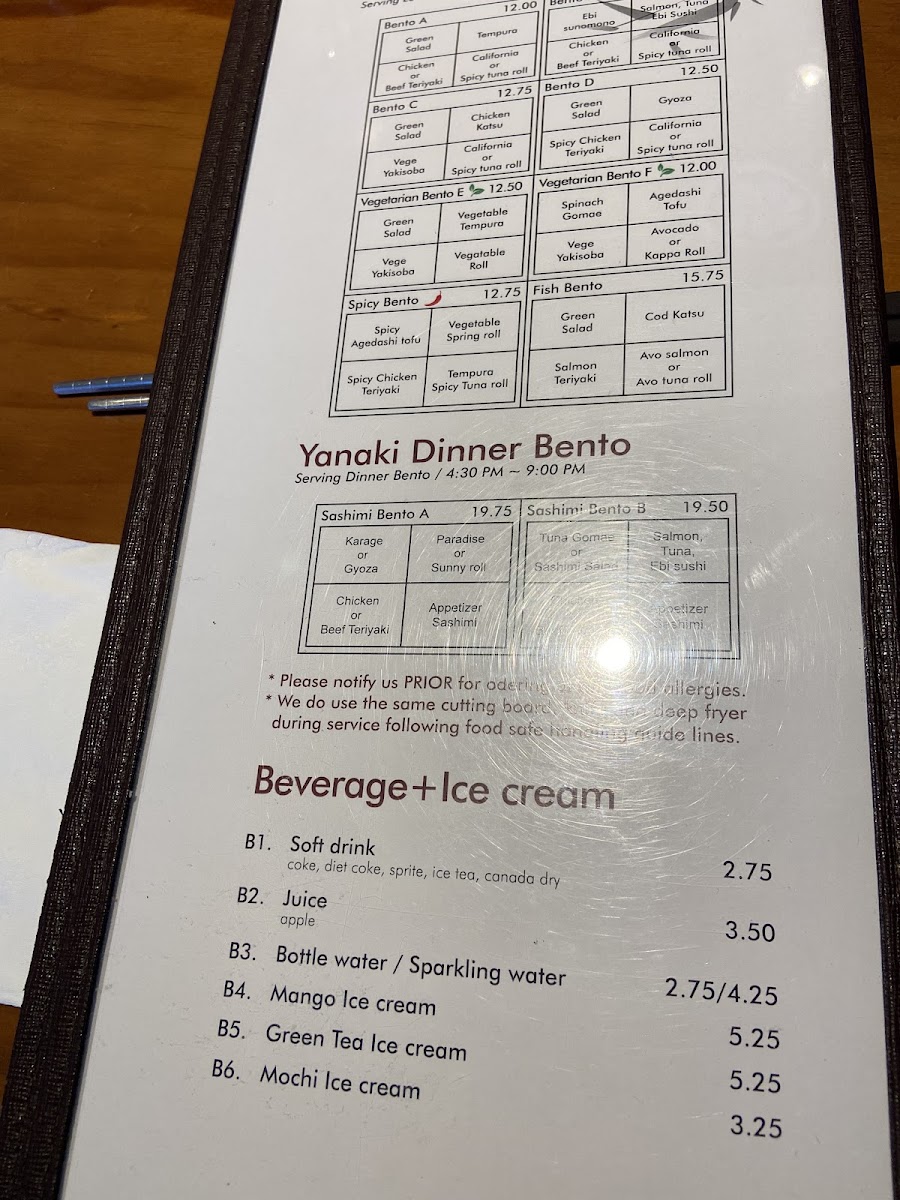 Serving
Bento A 12.00
Green
Salad
Tempura
Chicken
or
Beef Teriyaki
California
or
Spicy tuna roll
Ebi
sunomono
Salmon, Tuna
Ebi Sushi
Chicken
or
Beef Teriyaki
California
or
Spicy tuna roll
Bento C 12.75
Green
Salad
Chicken
Katsu
Vege
Yakisoba
California
or
Spicy tuna roll
Bento D 12.50
Green
Salad
Gyoza
Spicy Chicken
Teriyaki
California
or
Spicy tuna roll
Vegetarian Bento E 12.50
Green
Salad
Vegetable
Tempura
Vege
Yakisoba
Vegatable
Roll
Vegetarian Bento F 12.00
Spinach
Gomae
Agedashi
Tofu
Vege
Yakisoba
Avocado
or
Kappa Roll
Spicy Bento 12.75
Spicy
Agedashi tofu
Vegetable
Spring roll
Spicy Chicken
Teriyaki
Tempura
Spicy Tuna roll
Fish Bento 15.75
Green
Salad
Cod Katsu
Salmon
Teriyaki
Avo salmon
or
Avo tuna roll
Yanaki Dinner Bento
Serving Dinner Bento / 4:30 PM ~ 9:00 PM
Sashimi Bento A 19.75
Karage
or
Gyoza
Paradise
or
Sunny roll
Chicken
or
Beef Teriyaki
Appetizer
Sashimi
Sashimi Bento B 19.50
Tuna Gomae
or
Sashimi Salad
Salmon,
Tuna,
Ebi sushi
Appetizer
Sashimi
* Please notify us PRIOR for odering allergies.
* We do use the same cutting board, deep fryer
during service following food safe handling guide lines.
Beverage+Ice cream
B1. Soft drink 2.75
coke, diet coke, sprite, ice tea, canada dry
B2. Juice 3.50
apple
B3. Bottle water / Sparkling water 2.75/4.25
B4. Mango Ice cream 5.25
B5. Green Tea Ice cream 5.25
B6. Mochi Ice cream 3.25